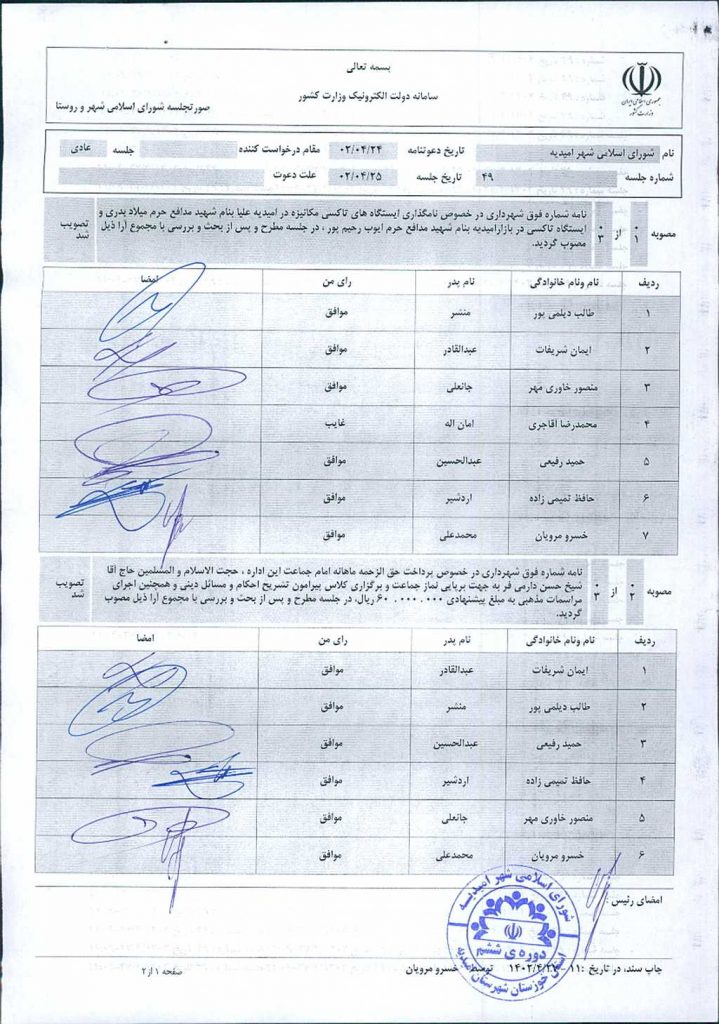 بسمه تعالی
سامانه دولت الکترونیک وزارت کشور
صورتجلسه شورای اسلامی شهر و روستا
جمهوری اسلامی ایران
وزارت کشور
نام شورای اسلامی شهر امیدیه تاریخ دعوتنامه ۰۲/۰۴/۲۴ مقام درخواست کننده جلسه عادی
شماره جلسه ۴۹ تاریخ جلسه ۰۲/۰۴/۲۵ علت دعوت
مصوبه ۰۱ از ۰۳ تصویب شد
نامه شماره فوق شهرداری در خصوص نامگذاری ایستگاه های تاکسی مکانیزه در امیدیه علیا بنام شهید مدافع حرم میلاد بدری و
ایستگاه تاکسی در بازارامیدیه بنام شهید مدافع حرم ایوب رحیم پور ، در جلسه مطرح و پس از بحث و بررسی با مجموع آرا ذیل
مصوب گردید.
ردیف نام ونام خانوادگی نام پدر رای من امضا
۱ طالب دیلمی پور منشر موافق
۲ ایمان شریفات عبدالقادر موافق
۳ منصور خاوری مهر جانعلی موافق
۴ محمدرضا آقاجری امان اله غایب
۵ حمید رفیعی عبدالحسین موافق
۶ حافظ تمیمی زاده اردشیر موافق
۷ خسرو مرویان محمدعلی موافق
مصوبه ۰۲ از ۰۳ تصویب شد
نامه شماره فوق شهرداری در خصوص پرداخت حق الزحمه ماهانه امام جماعت این اداره ، حجت الاسلام و المسلمین حاج آقا
شیخ حسن دارمی فر به جهت برپایی نماز جماعت و برگزاری کلاس پیرامون تشریح احکام و مسائل دینی و همچنین اجرای
مراسمات مذهبی به مبلغ پیشنهادی ۶۰.۰۰۰.۰۰۰ ریال، در جلسه مطرح و پس از بحث و بررسی با مجموع آرا ذیل مصوب
گردید.
ردیف نام ونام خانوادگی نام پدر رای من امضا
۱ ایمان شریفات عبدالقادر موافق
۲ طالب دیلمی پور منشر موافق
۳ حمید رفیعی عبدالحسین موافق
۴ حافظ تمیمی زاده اردشیر موافق
۵ منصور خاوری مهر جانعلی موافق
۶ خسرو مرویان محمدعلی موافق
امضای رئیس :
شورای اسلامی شهر امیدیه
دوره ی ششم
استان خوزستان شهرستان امیدیه
چاپ سند، در تاریخ : ۱۱ - ۱۴۰۲/۴/۲۷ توسط خسرو مرویان
صفحه ۱ از ۲